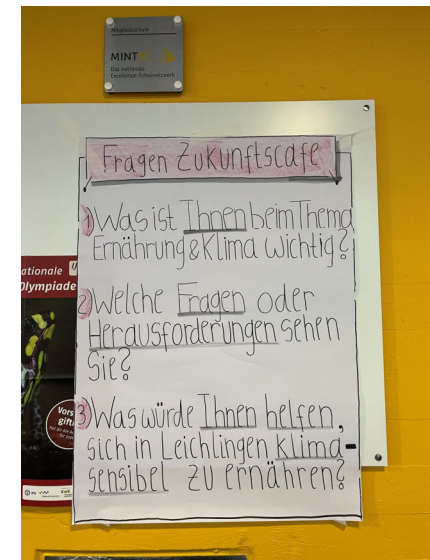 Mitgliedsschule
MINT
Das nationale
Excellence-Schulnetzwerk
Fragen Zukunftscafe
1) Was ist Ihnen beim Thema
Ernährung & Klima wichtig?
2) Welche Fragen oder
Herausforderungen sehen
Sie?
3) Was würde Ihnen helfen,
sich in Leichlingen Klima-
sensibel zu ernähren?
ationale
Olympiade
Vors
gifti